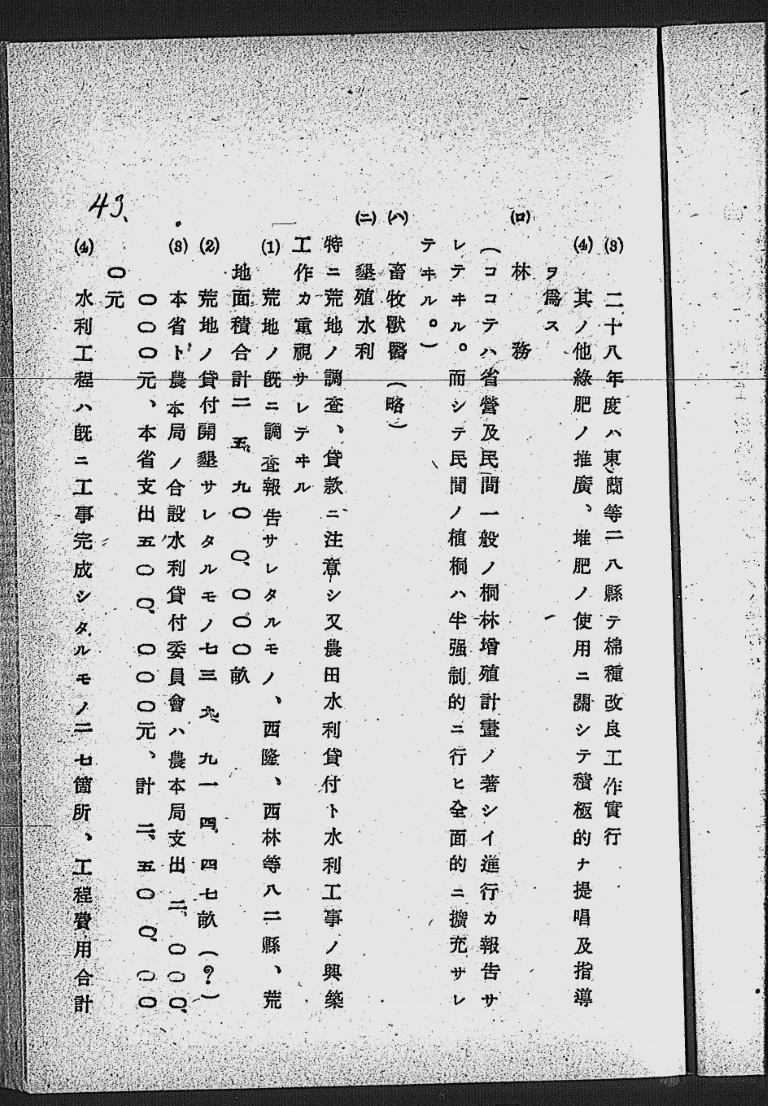 (3) 二十八年度ハ東蘭等二八縣テ棉種改良工作實行
(4) 其ノ他綠肥ノ推廣、堆肥ノ使用ニ關シテ積極的ナ提唱及指導
ヲ爲ス
(ロ) 林務
(ココテハ省營及民間一般ノ桐林增殖計畫ノ著シイ進行カ報告サ
レテヰル。而シテ民間ノ植桐ハ半强制的ニ行ヒ全面的ニ擴充サレ
テヰル。)
(ハ) 畜牧獸醫(略)
(ニ) 墾殖水利
特ニ荒地ノ調査、貸款ニ注意シ又農田水利貸付ト水利工事ノ興築
工作カ重視サレテヰル
(1) 荒地ノ既ニ調査報告サレタルモノ、西隆、西林等八二縣、荒
地面積合計二五、九〇〇、〇〇〇畝
(2) 荒地ノ貸付開墾サレタルモノ七三六、九一四、四七畝(?)
(3) 本省ト農本局ノ合設水利貸付委員會ハ農本局支出二、〇〇〇、
〇〇〇元、本省支出五〇〇、〇〇〇元、計二、五〇〇、〇〇
〇元
(4) 水利工程ハ既ニ工事完成シタルモノ二七箇所、工程費用合計
43.